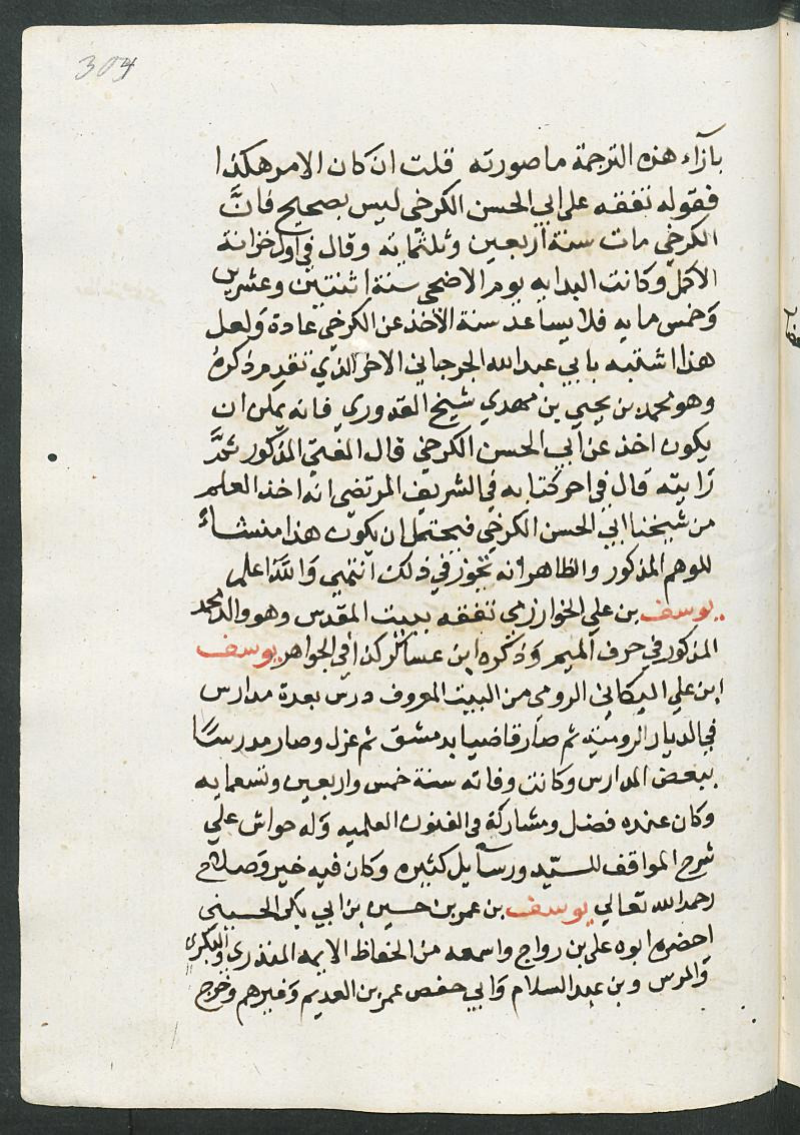 304
بازآء هذه الترجمة ماصورته قلت ان كان الامر هكذا
فقوله تفقه على ابي الحسن الكرخي ليس بصحيح فانَّ
الكرخي مات سنة اربعين وثلثمائة وقال في اول خزانة
الاكمل وكانت البدايه يوم الاضحى سنة اثنتين وعشرين
وخمس مايه فلا يساعد سنة الآخذ عن الكرخي عادة ولعل
هذا اشتبه بابي عبد الله الجرجاني الاخر الذي تقدم ذكره
وهو محمد بن يحيى بن مهدي شيخ القدوري فانه يمكن ان
يكون اخذ عن ابي الحسن الكرخي قال المفتي المذكور ثمَّ
رايته قال في اخر كتابه في الشريف المرتضى انه اخذ العلم
من شيخنا ابي الحسن الكرخي فيحتمل ان يكون هذا منشاء
للوهم المذكور والظاهر انه تجوز في ذلك انتهي والله اعلم
يوسف بن علي الخوارزمي تفقه ببيت المقدس وهو والد محمد
المذكور في حرف الميم وذكره ابن عساكر كذا في الجواهر يوسف
ابن علي اليكاني الرومي من البيت المعروف درس بعدة مدارس
في الديار الرومية ثم صار قاضيا بدمشق ثم عزل وصار مدرسًا
ببعض المدارس وكانت وفاته سنة خمس واربعين وتسعمايه
وكان عنده فضل ومشاركة في الفنون العلميه وله حواش علي
شرح المواقف للسيّد ورسآيل كثيره وكان فيه خير وصلاح
رحمه الله تعالي يوسف بن عمر بن حسين بن ابي بكر الحسيني
احضره ابوه على بن رواج واسمعه من الحفاظ الايمه المنذري والبكري
والمرس وبن عبد السلام وابي حفص عمر بن العديم وغيرهم وخرج